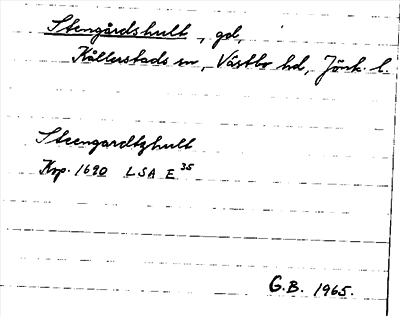 Stengårdshult, gd,
Kållerstads sn, Västbo hd, Jönk. l.
Steengardtzhult
Kop. 1690 LSA E 35
G.B. 1965.